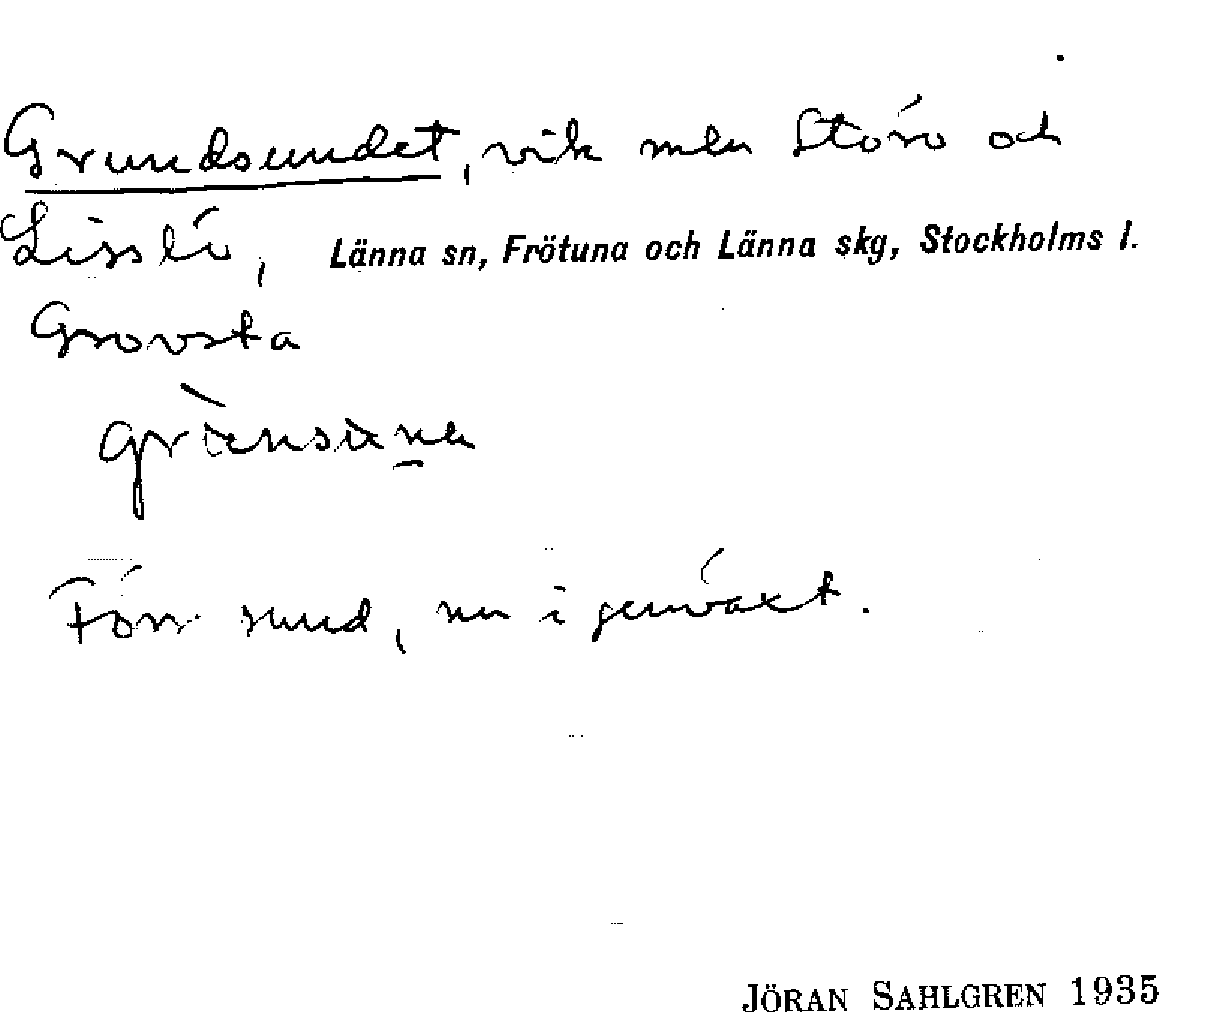 Grundsundet, vik mln Storö och
Lisslö, Länna sn, Frötuna och Länna skg, Stockholms l.
Grovsta
Förr sund, nu igenväxt.
JÖRAN SAHLGREN 1935